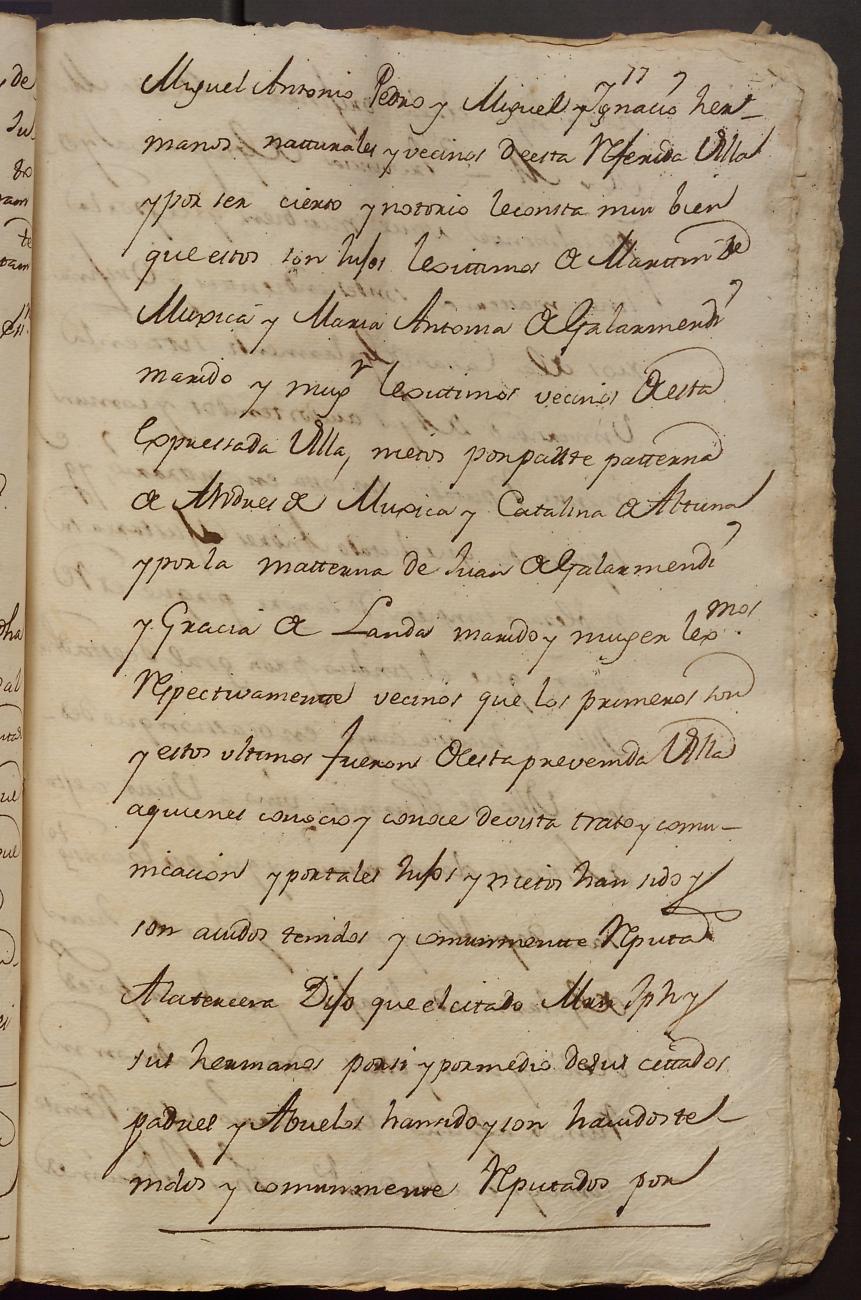 17
Miguel Antonio Pedro y Miguel Ygnacio her-
manos natturales y vecinos de esta Referida Villa
y por ser cierto y notorio le consta mui bien
que estos son hijos lexittimos de Marttin de
Muxica y Maria Antonia de Galarmendi
marido y mugr lexitimos vecinos de esta
expressada Villa, nietos por partte patterna
de Andres de Muxica y Catalina de Altuna
y por la matterna de Juan de Galarmendi
y Gracia de Landa marido y muger lexmos
Respectivamentte vecinos que los primeros son
y estos ultimos fueron de esta prevenida Villa
a quienes conocio y conoce de vista trato y comu-
nicacion y por tales hijos y nietos han sido y
son auidos tenidos y comunmentte Reputads
A la tercera Dijo que el citado Jph y
sus hermanos por si y por medio de sus cittados
padres y Abuelos han sido y son hauidos te-
nidos y comunmente Reputados por